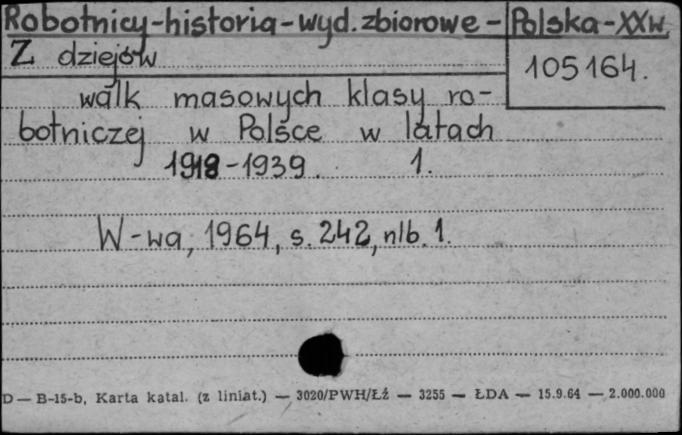 Robotnicy-historia-wyd.zbiorowe-Polska-XXw.
Z dziejów
105164.
walk masowych klasy ro-
botniczej w Polsce w latach
1918-1939. 1.
W-wa, 1964, s. 242, nlb. 1.
D — B-15-b, Karta katal. (z liniat.) — 3020/PWH/Łź — 3255 — ŁDA — 15.9.64 — 2.000.000